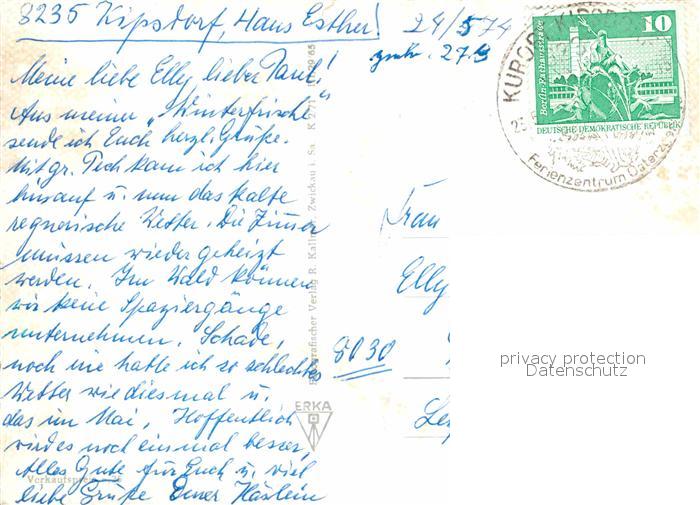 8235 Kipsdorf, Haus Esther! 24/5 74
27.5
Meine liebe Elly lieber Paul!
Aus meiner „Winterfrische"
sende ich Euch herzl. Grüße.
Mit gr. Pech kam ich hier
hinauf u. nun das kalte
regnerische Wetter. Die Zimmer
müssen wieder geheizt
werden. Im Wald können
wir keine Spaziergänge
unternehmen. Schade,
noch nie hatte ich so schlechtes
Wetter wie diesmal u.
das im Mai. Hoffentlich
wird es noch einmal besser,
Alles Gute für Euch u. viel
liebe Grüße
Verkaufspreis
Fotografischer Verlag R. Zwickau i. Sa
ERKA
Frau
Elly
8030
privacy protection
Datenschutz
KURORT KIPSDORF
Ferienzentrum Osterzgeb
10
Berlin, Rathausstraße
DEUTSCHE DEMOKRATISCHE REPUBLIK